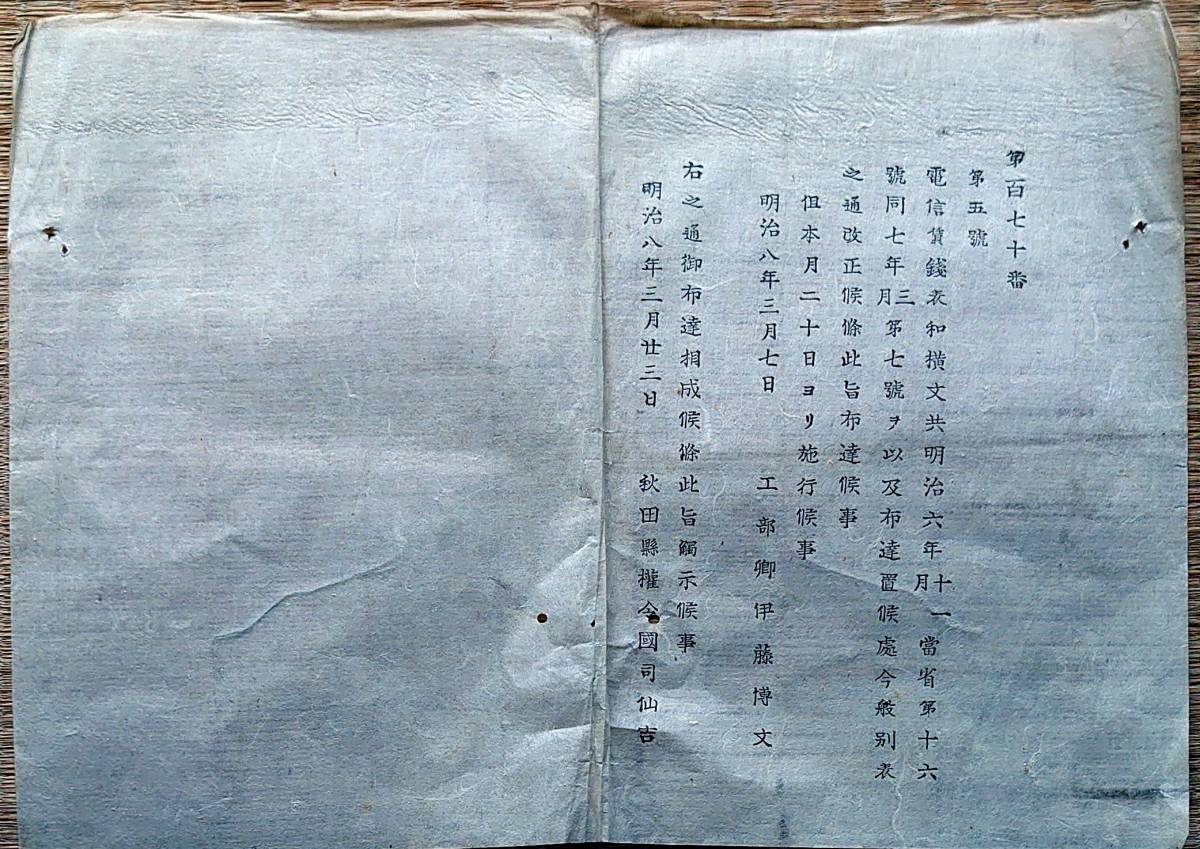 第百七十番
第五號
電信賃錢表和横文共明治六年十一月當省第十六
號同七年三月第七號ヲ以及布達置候處今般別表
之通改正候條此旨布達候事
但本月二十日ヨリ施行候事
明治八年三月七日 工部卿伊藤博文
右之通御布達相成候條此旨觸示候事
明治八年三月廿三日 秋田縣權令國司仙吉